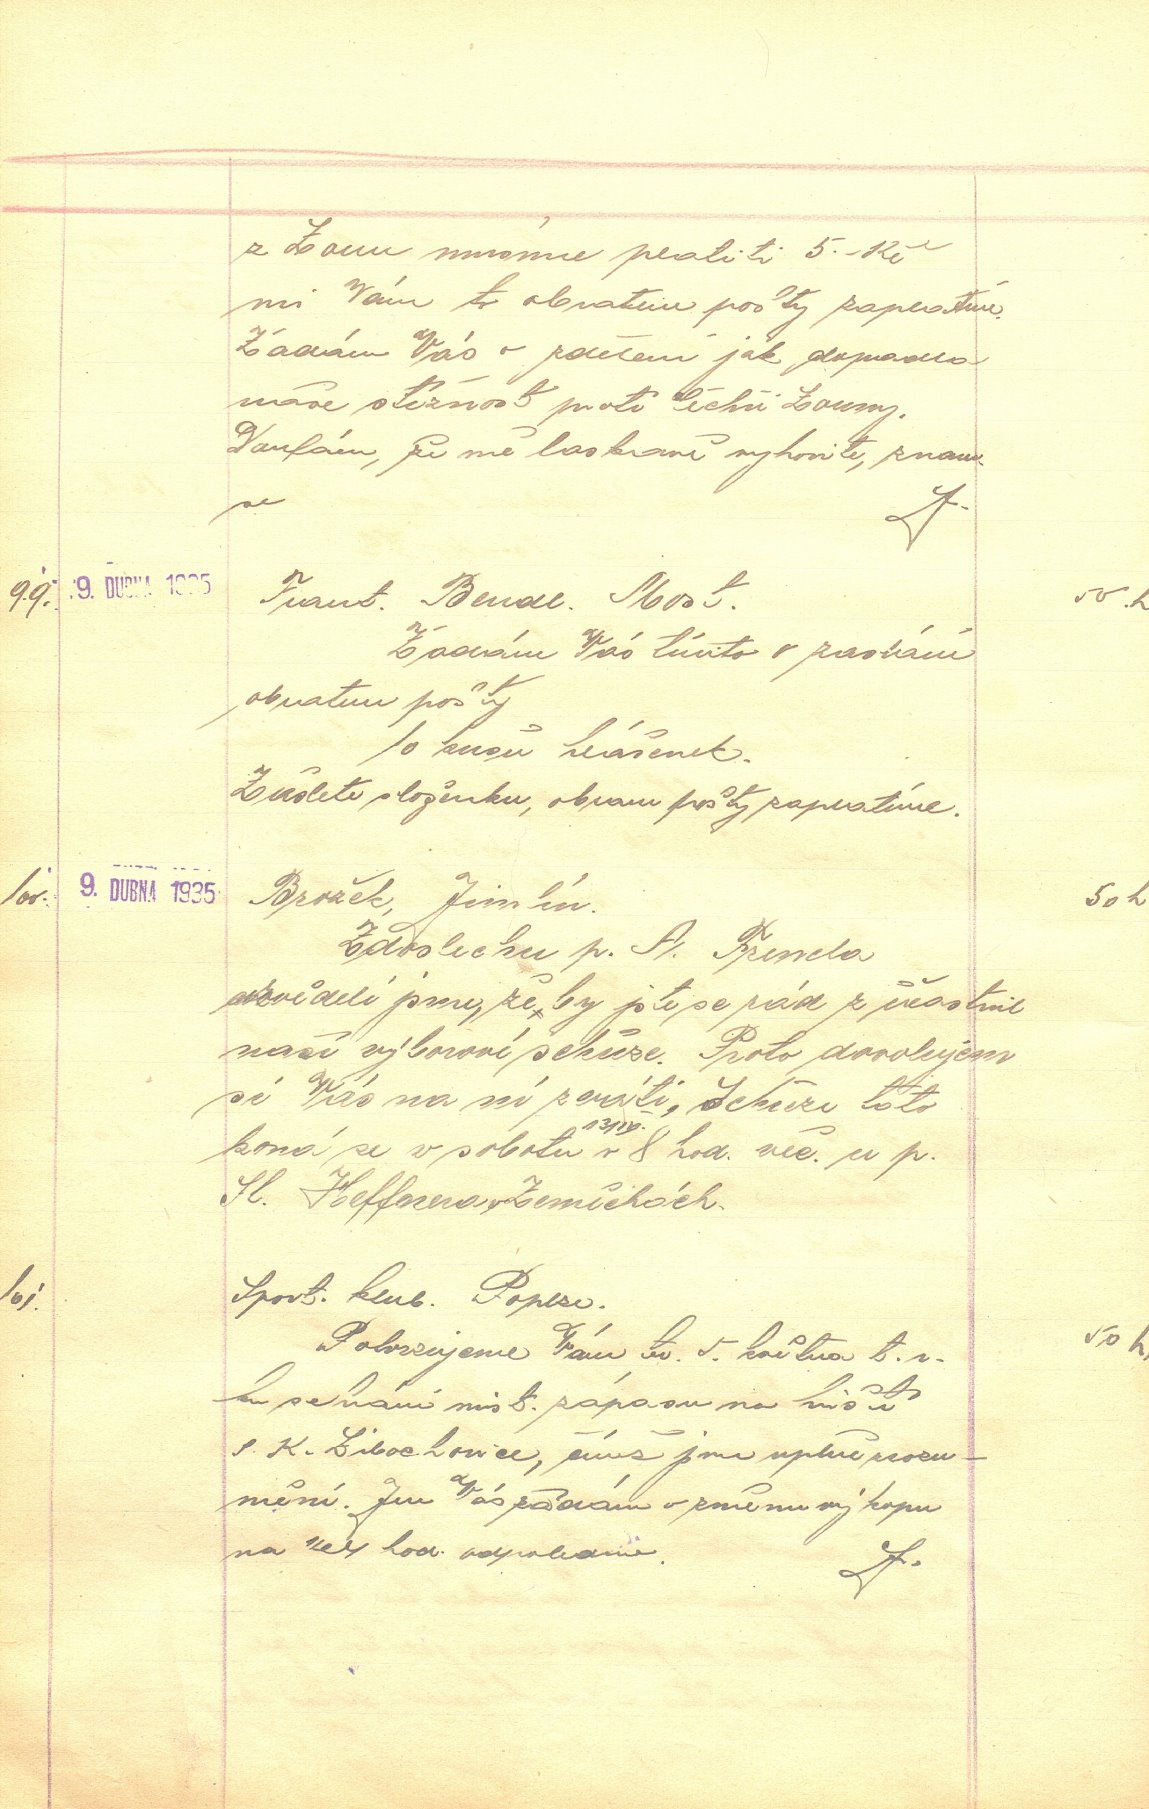 z Loun musíme platiti 5.- Kč
mi Vám to obratem pošty zaplatíme.
Žádám Vás o sdělení jak dopadla
naše stížnost proti Čechii Louny.
Doufám, že mě laskavě vyhovíte, znam.
se
99. 9. DUBNA 1935 Frant. Bendl. Most. 50 h
Žádám Vás tímto o zaslání
obratem pošty
10 kusů hlášenek.
Zašlete složenku, obratem pošty zaplatíme.
100. 9. DUBNA 1935 Brožek, Jimlín. 50 h
Z doslechu p. A. Prendla
dověděli jsme, že by jste se rád zúčastnil
naší výborové schůze. Proto dovolujem
si Vás na ní zváti, Schůze tato
koná se v sobotu 13/IV. v 8 hod. več. u p.
Sl. Heffnera v Zeměchách.
101. Sport. klub. Poplze. 50 h
Potvrzujeme Vám to. 5. května t. r.
ku sehrání mist. zápasu na hřišti
S. K. Libochovice, čímž jsme uplně srozu-
měni. Jen Vás žádám o změnu výkopu
na hod. odpoledne.